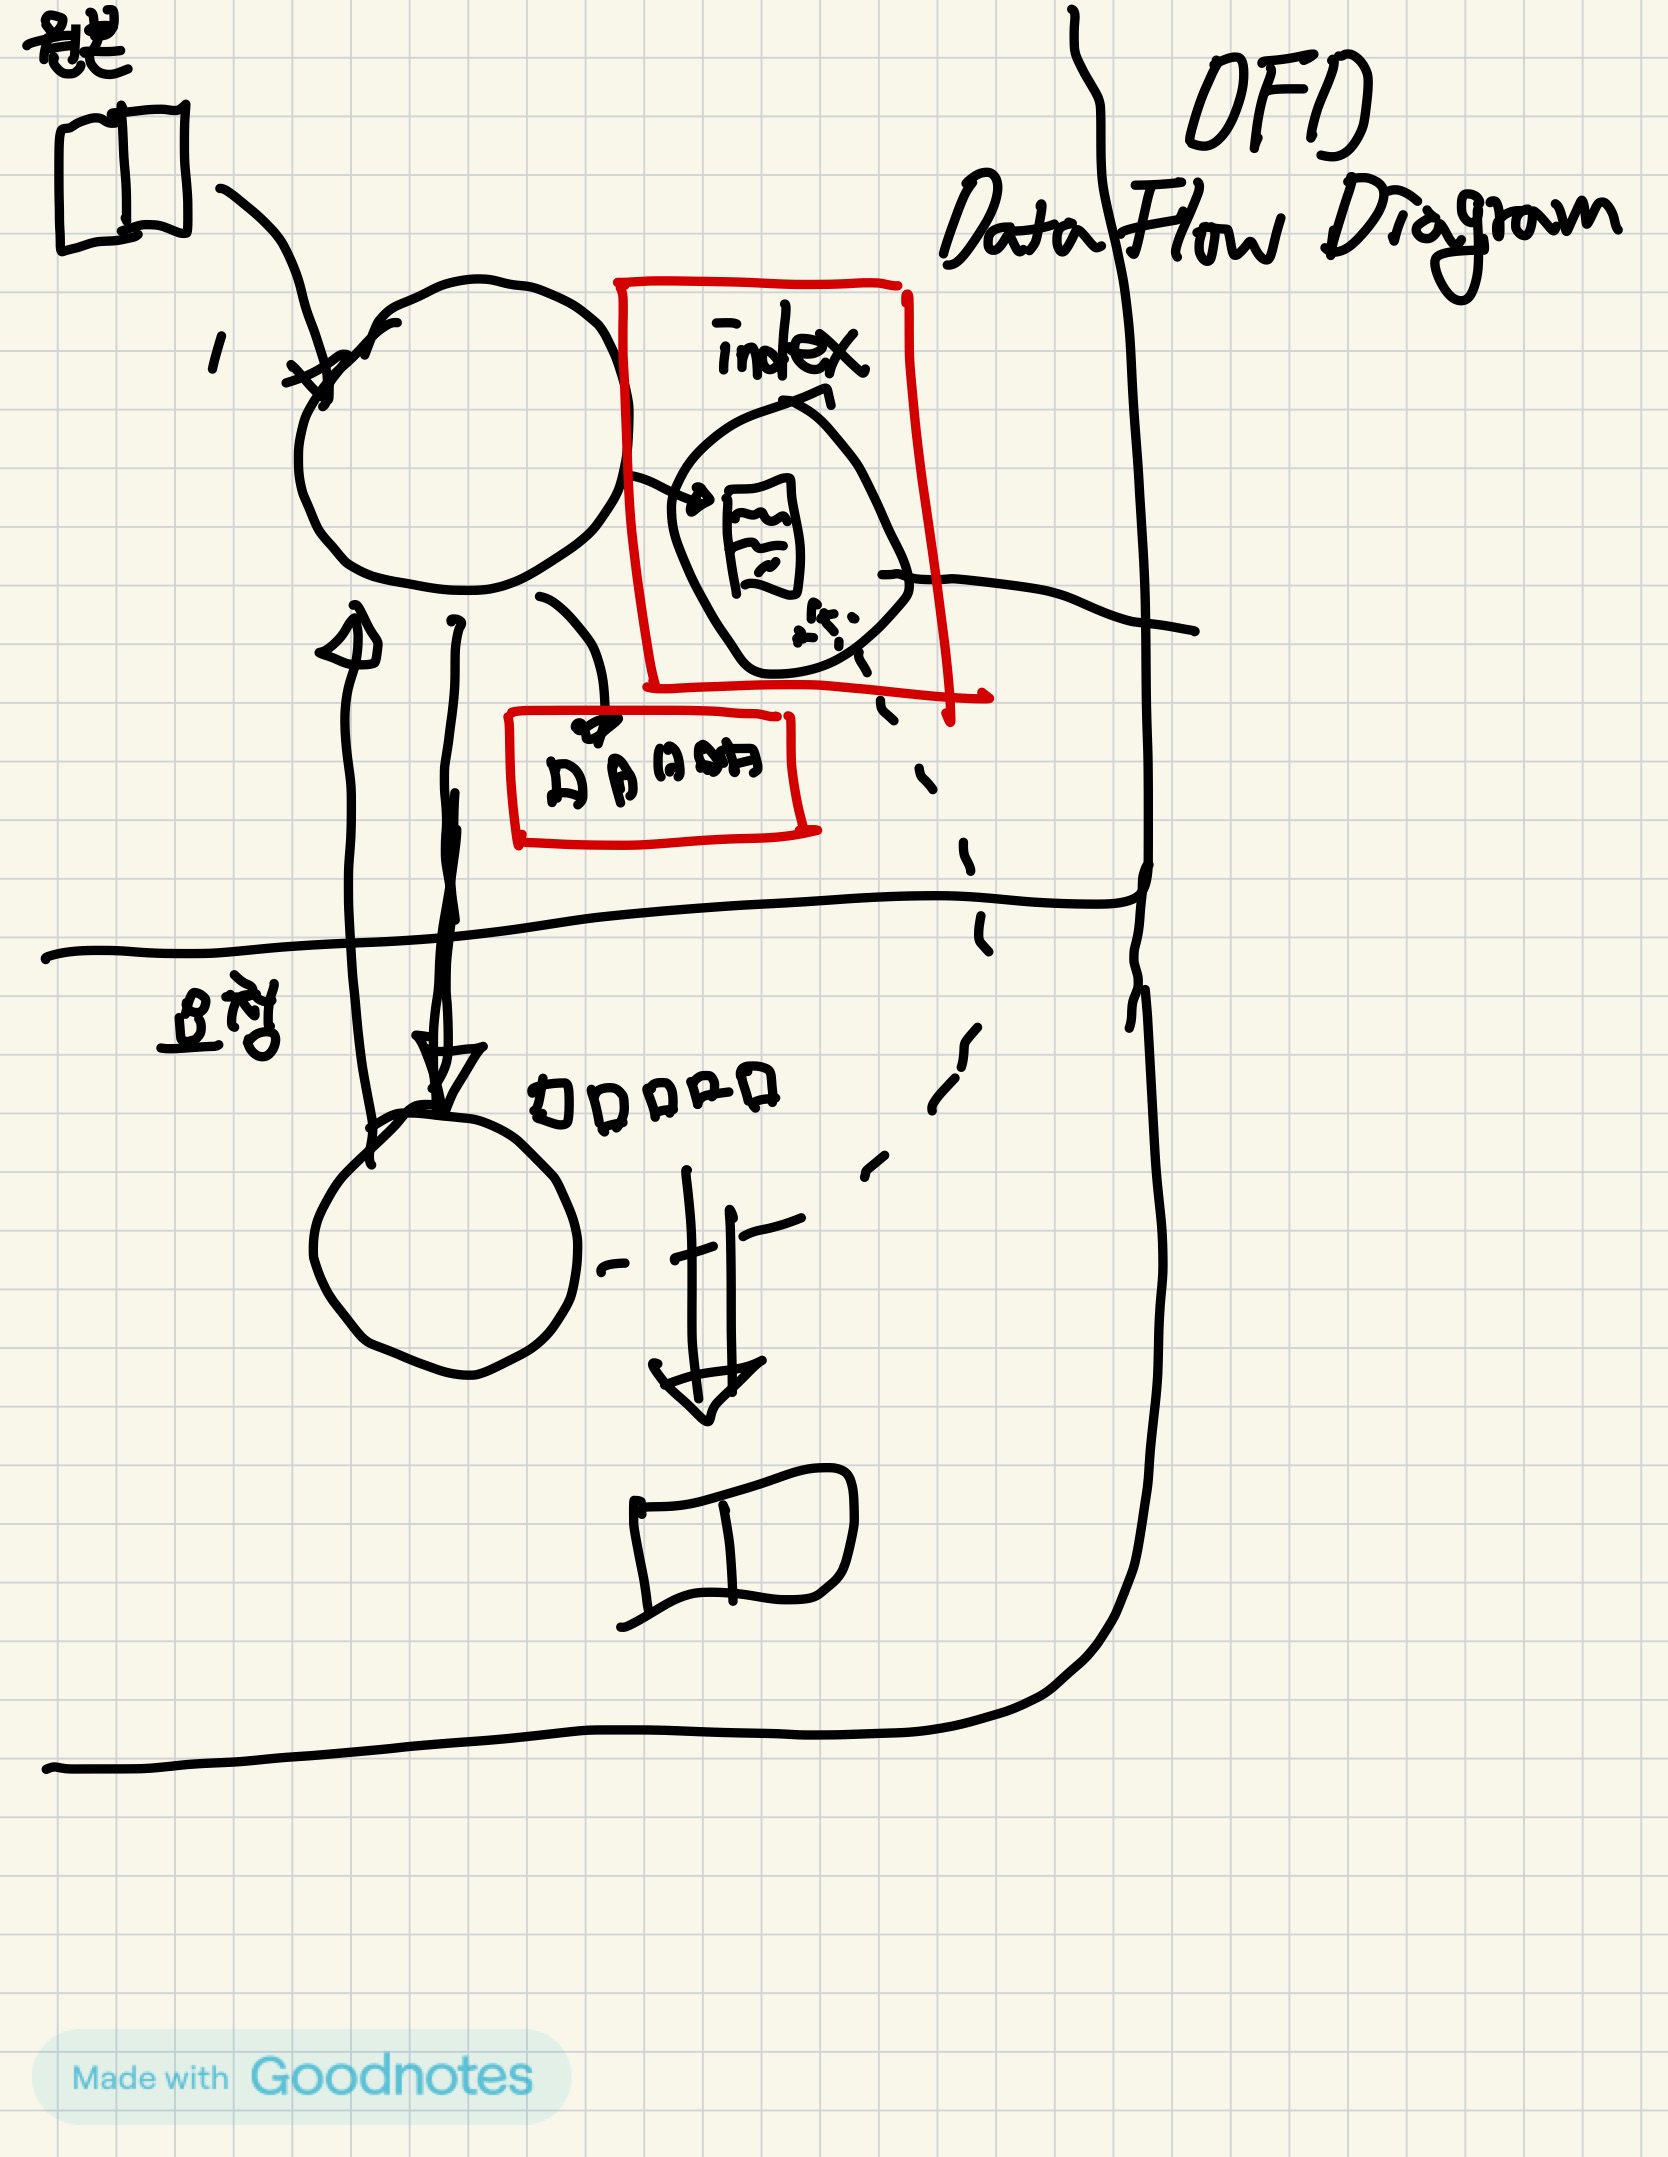 원본
DFD
Data Flow Diagram
index
보정
Made with Goodnotes